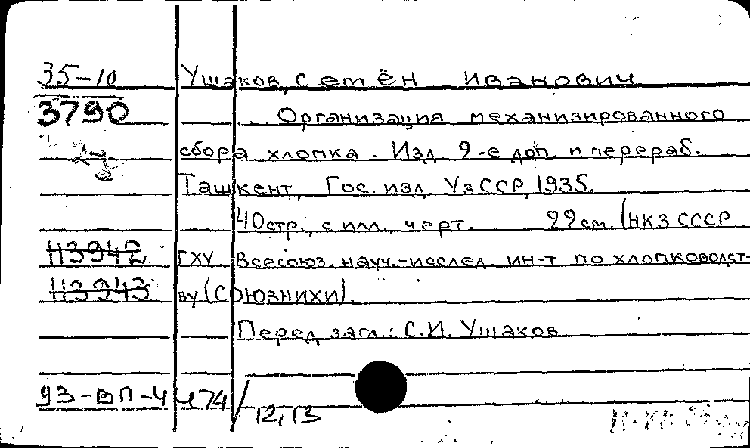 35-10 Ушаков, Семён Иванович
3790 Организация механизированного
сбора хлопка. Изд 2-е доп и перераб.
Ташкент, Гос. изд. УзССР, 1935.
40 стр., с илл., черт. 22 см. (НКЗ СССР
113942 ГХУ Всесоюз. науч.-исслед. ин-т по хлопководст-
113943 ву (СОЮЗНИХИ).
Перед загл.: С.И. Ушаков
93-ВП-4 474/12,13